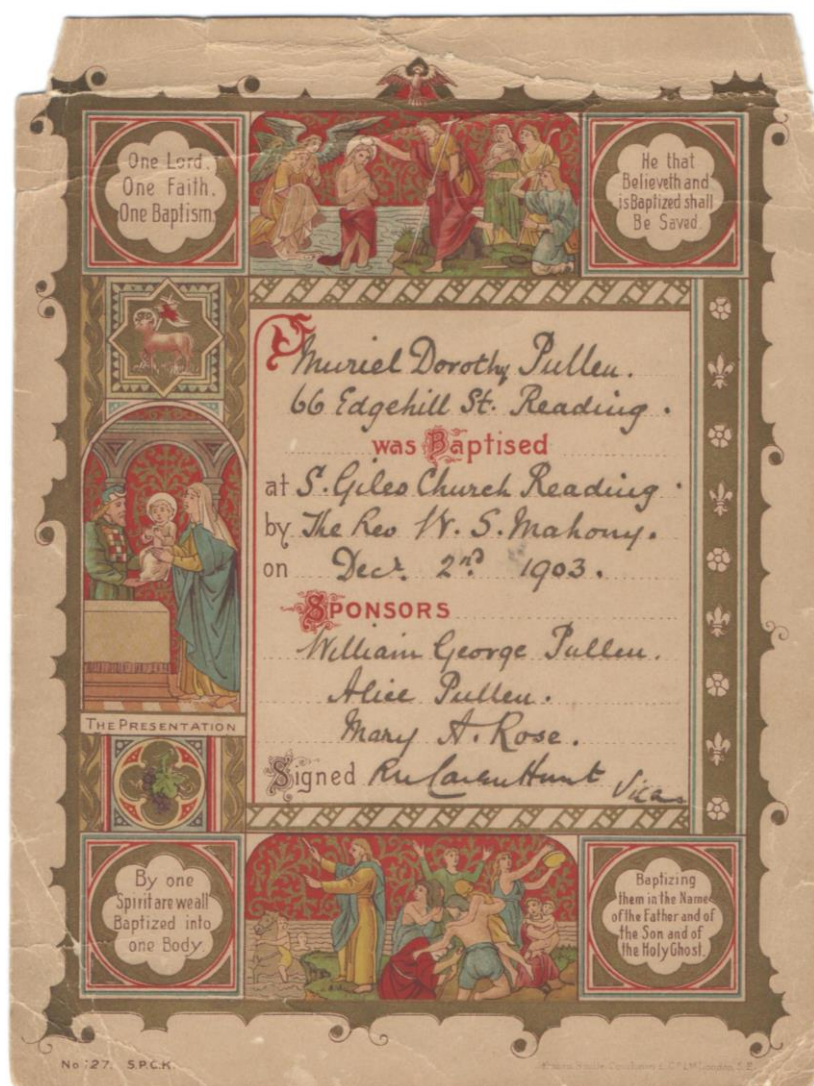 One Lord.
One Faith.
One Baptism.
He that
Believeth and
is Baptized shall
Be Saved.
Muriel Dorothy Pullen.
66 Edgehill St. Reading.
was Baptised
at S. Giles Church Reading.
by The Rev W. S. Mahony.
on Decr. 2nd 1903.
SPONSORS
William George Pullen.
Alice Pullen.
Mary A. Rose.
Signed Hunt Vicar
THE PRESENTATION
By one
Spirit are we all
Baptized into
one Body.
Baptizing
them in the Name
of the Father and of
the Son and of
the Holy Ghost.
No 27. S.P.C.K.
London, S.E.